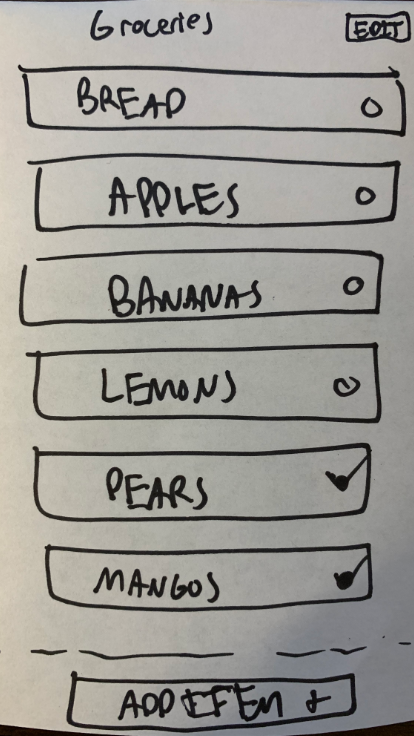 Groceries EDIT
BREAD
APPLES
BANANAS
LEMONS
PEARS
MANGOS
ADD ITEM +